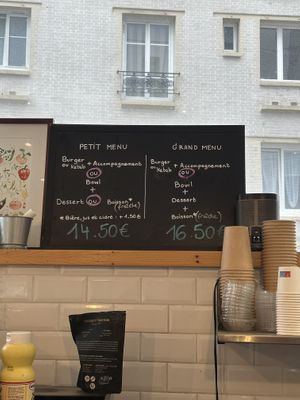 PETIT MENU
Burger + Accompagnement
ou Kebab
OU
Bowl
+
Dessert OU Boisson*
(fraîche)
* Bière, jus et cidre : + 1.50€
14.50€
GRAND MENU
Burger + Accompagnement
ou Kebab
OU
Bowl
+
Dessert
+
Boisson* (fraîche)
16.50€